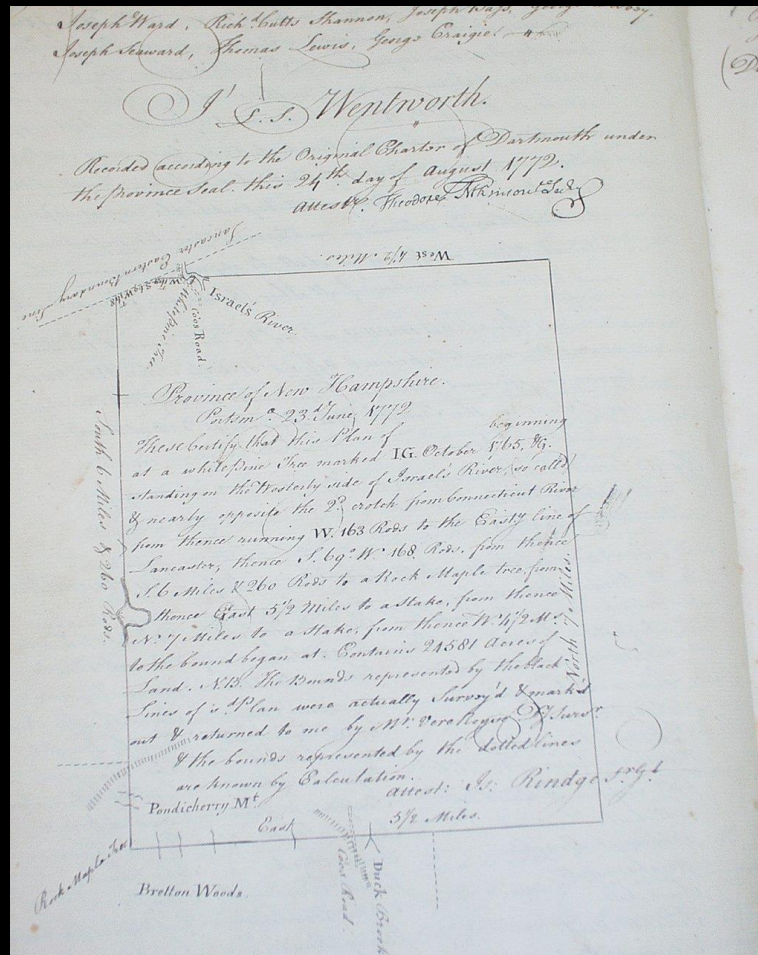 Joseph Ward, Rich.d Cutts Shannon, Joseph Bass, George
Joseph Seaward, Thomas Lewis, George Craigie
J. Wentworth.
L. S.
Recorded according to the Original Charter of Dartmouth under
the Province Seal this 24th day of August 1772.
Attest Theodore Atkinson Secy
Lancaster Eastern Boundary Line
West 4 1/2 Miles
Israel's River
White Pine Tree
Coos Road.
Province of New Hampshire.
Portsmo 23d June 1772
These Certify that this Plan of beginning
at a white Pine Tree marked IG. October 1765, HG.
standing on the Westerly side of Israel's River, so called
& nearly opposite the 2d crotch from Connecticut River
from thence running W. 163 Rods to the Easty line of
Lancaster, thence S. 69° W. 168 Rods, from thence
S. 6 Miles & 260 Rods to a Rock Maple tree, from
thence East 5 1/2 Miles to a stake, from thence
No 7 Miles to a stake, from thence W. 4 1/2 Ms
to the bound began at. Contains 24581 Acres of
Land. N.B. The Bounds represented by the black
Lines of sd Plan were actually Survey'd & marked
out & returned to me by Mr. Vere Royse Dy Survr
& the bounds represented by the dotted lines
are known by Calculation.
Attest: Is: Rindge Sr Gl
South 6 Miles & 260 Rods.
North 7 Miles.
Pondicherry Mt
East 5 1/2 Miles.
Rock Maple Tree
Bretton Woods.
Coos Road.
Duck Brook